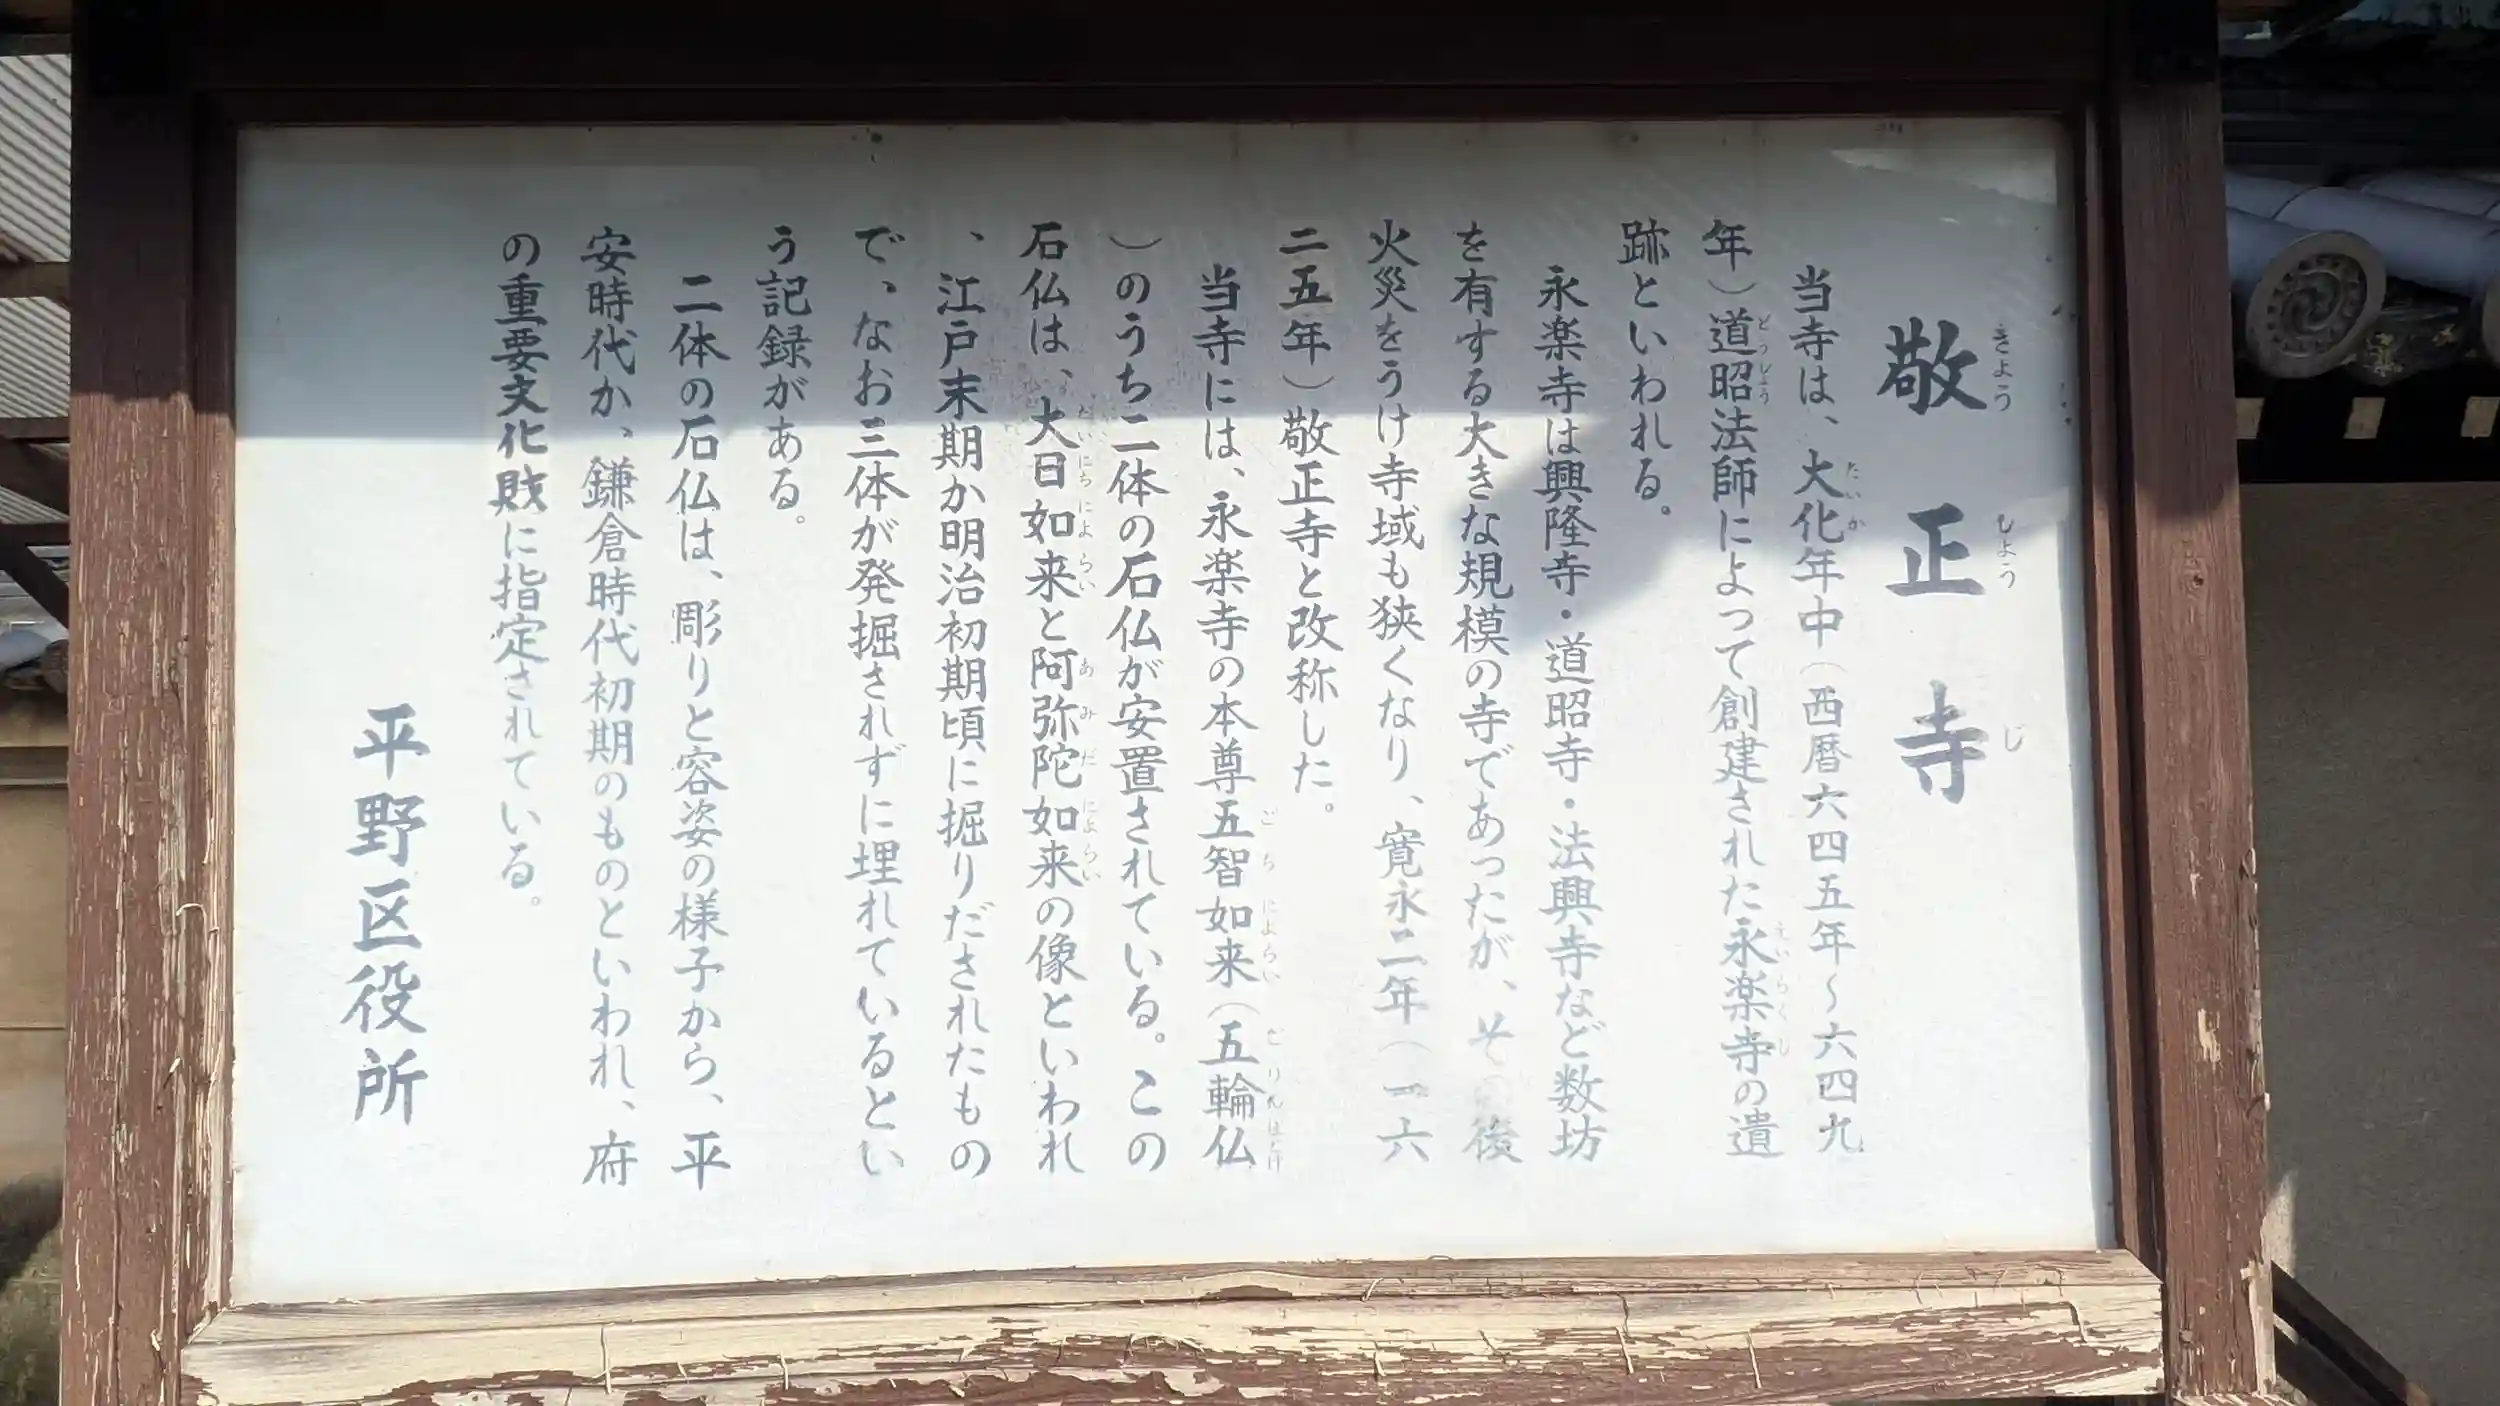 敬正寺
きょうしょうじ
当寺は、大化年中（西暦六四五年～六四九
年）道昭法師によって創建された永楽寺の遺
跡といわれる。
永楽寺は興隆寺・道昭寺・法興寺など数坊
を有する大きな規模の寺であったが、その後
火災をうけ寺域も狭くなり、寛永二年（一六
二五年）敬正寺と改称した。
当寺には、永楽寺の本尊五智如来（五輪仏
）のうち二体の石仏が安置されている。この
石仏は、大日如来と阿弥陀如来の像といわれ
、江戸末期か明治初期頃に掘りだされたもの
で、なお三体が発掘されずに埋れているとい
う記録がある。
二体の石仏は、彫りと容姿の様子から、平
安時代か、鎌倉時代初期のものといわれ、府
の重要文化財に指定されている。
平野区役所